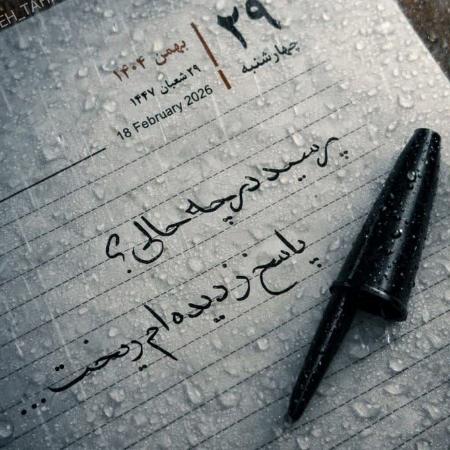 ۲۹
بهمن ۱۴۰۴
چهارشنبه
۲۹ شعبان ۱۴۴۷
18 February 2026
پرسید در چه حالی؟
پاسخ ز دیده ام ریخت...